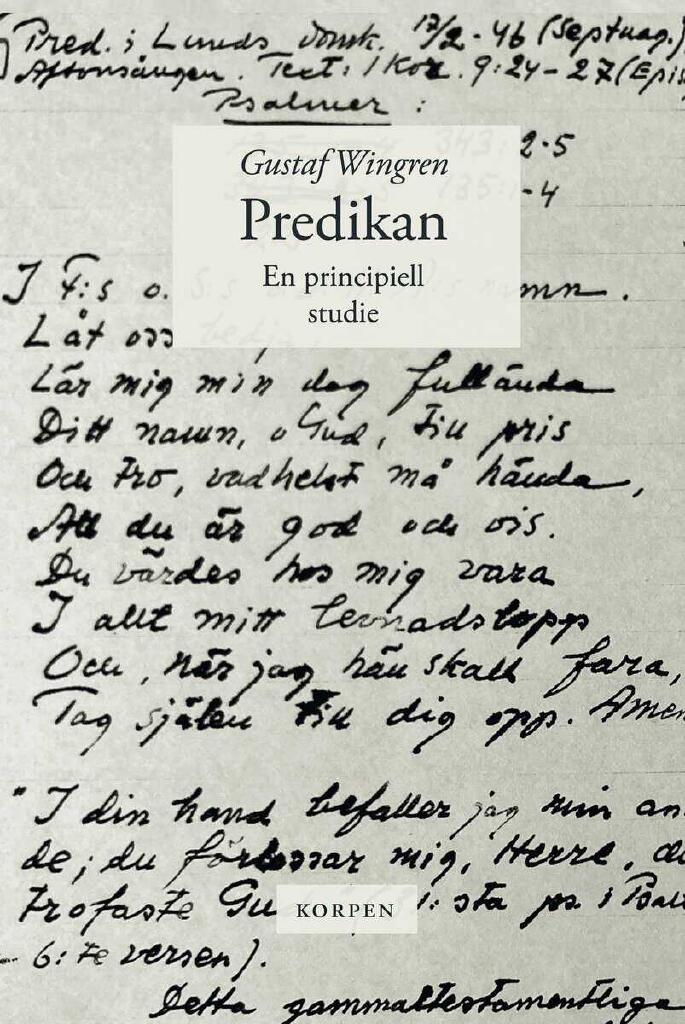 Pred. i Lunds domk. 17/2 - 46 (Septuag.)
Aftonsången. Text: 1 Kor. 9:24-27 (Epis
Psalmer:
343: 2-5
135: 1-4
Gustaf Wingren
Predikan
En principiell
studie
I F:s o. S:s namn.
Låt oss bedja
Lär mig min dag fullända
Ditt namn, o Gud, till pris
Och tro, vadhelst må hända,
Att du är god och vis.
Du värdes hos mig vara
I allt mitt levnadslopp
Och, när jag hän skall fara,
Tag själen till dig opp. Amen
"I din hand befaller jag min an-
de; du förlossar mig, Herre, du
trofaste Gu 1:sta ps. i Psal
- 6:te versen).
KORPEN
Detta gammaltestamentliga